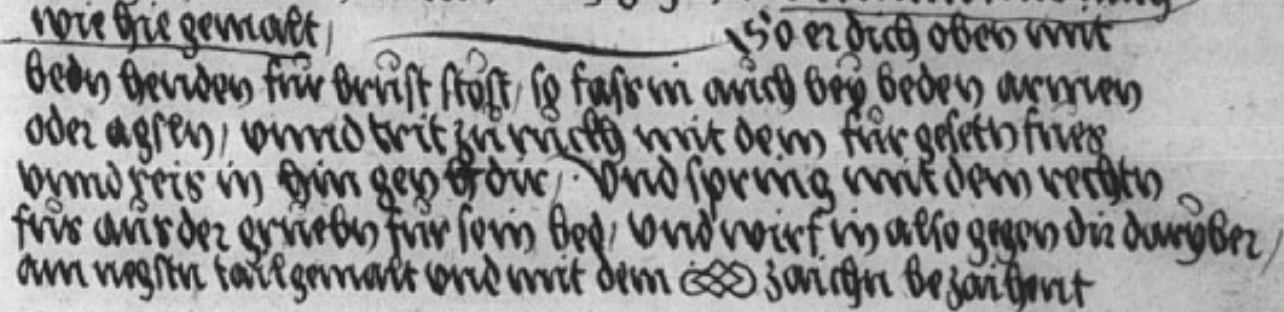 wie hie gemalt / So er dich oben mit
bedn henden für brüst stöst / so fass in auch bey beden armen
oder agsen / vnnd trit zu ruckh mit dem für geseztn fues
vnnd reis in hin gegen dir / Vnd spring mit dem rechtn
fůs aus der grůebn für sein bed / vnd wirf in also gegen dir darÿber /
am negstn tail gemalt vnd mit dem zaichn bezaichent